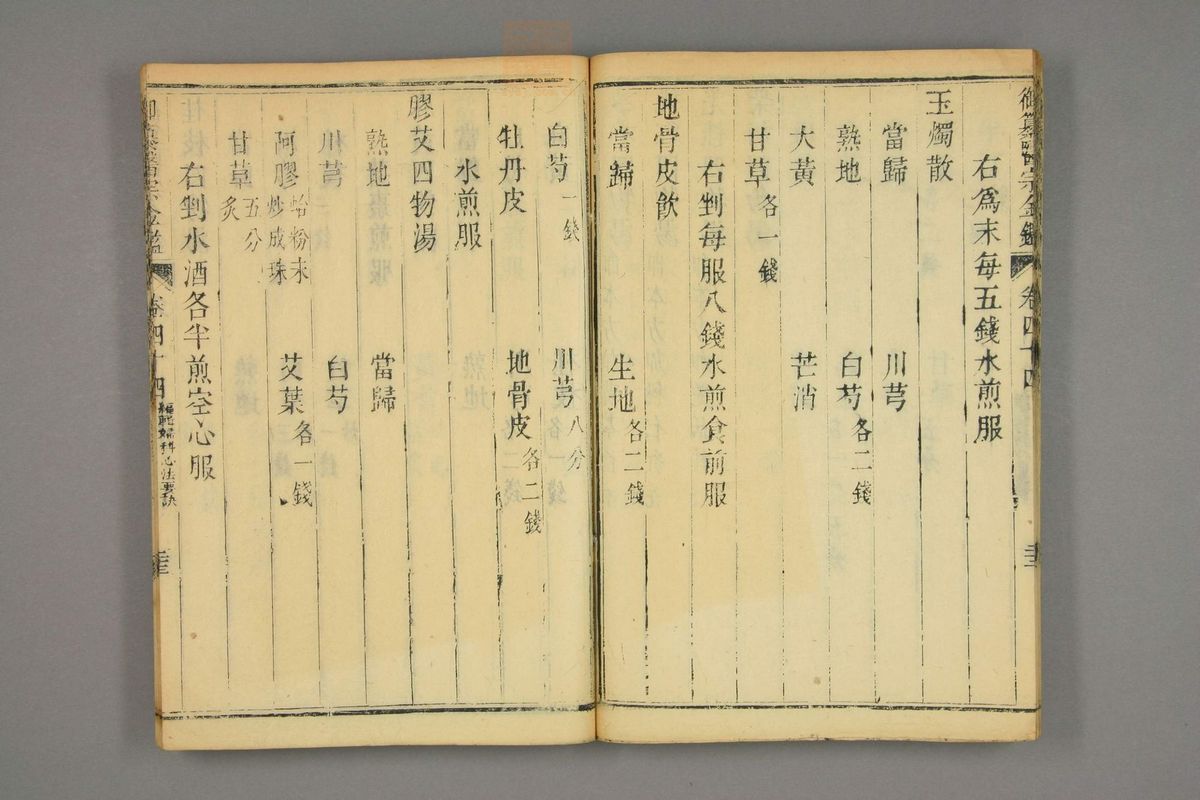 御纂醫宗金鑑 卷四十四
右爲末每五錢水煎服
玉燭散
當歸 川芎
熟地 白芍各二錢
大黃 芒消
甘草各一錢
右剉每服八錢水煎食前服
地骨皮飲
當歸 生地各二錢
白芍一錢 川芎八分
牡丹皮 地骨皮各二錢
水煎服
膠艾四物湯
熟地 當歸
川芎 白芍
阿膠蛤粉末炒成珠 艾葉各一錢
甘草五分炙
右剉水酒各半煎空心服
御纂醫宗金鑑 卷四十四 編輯婦科心法要訣